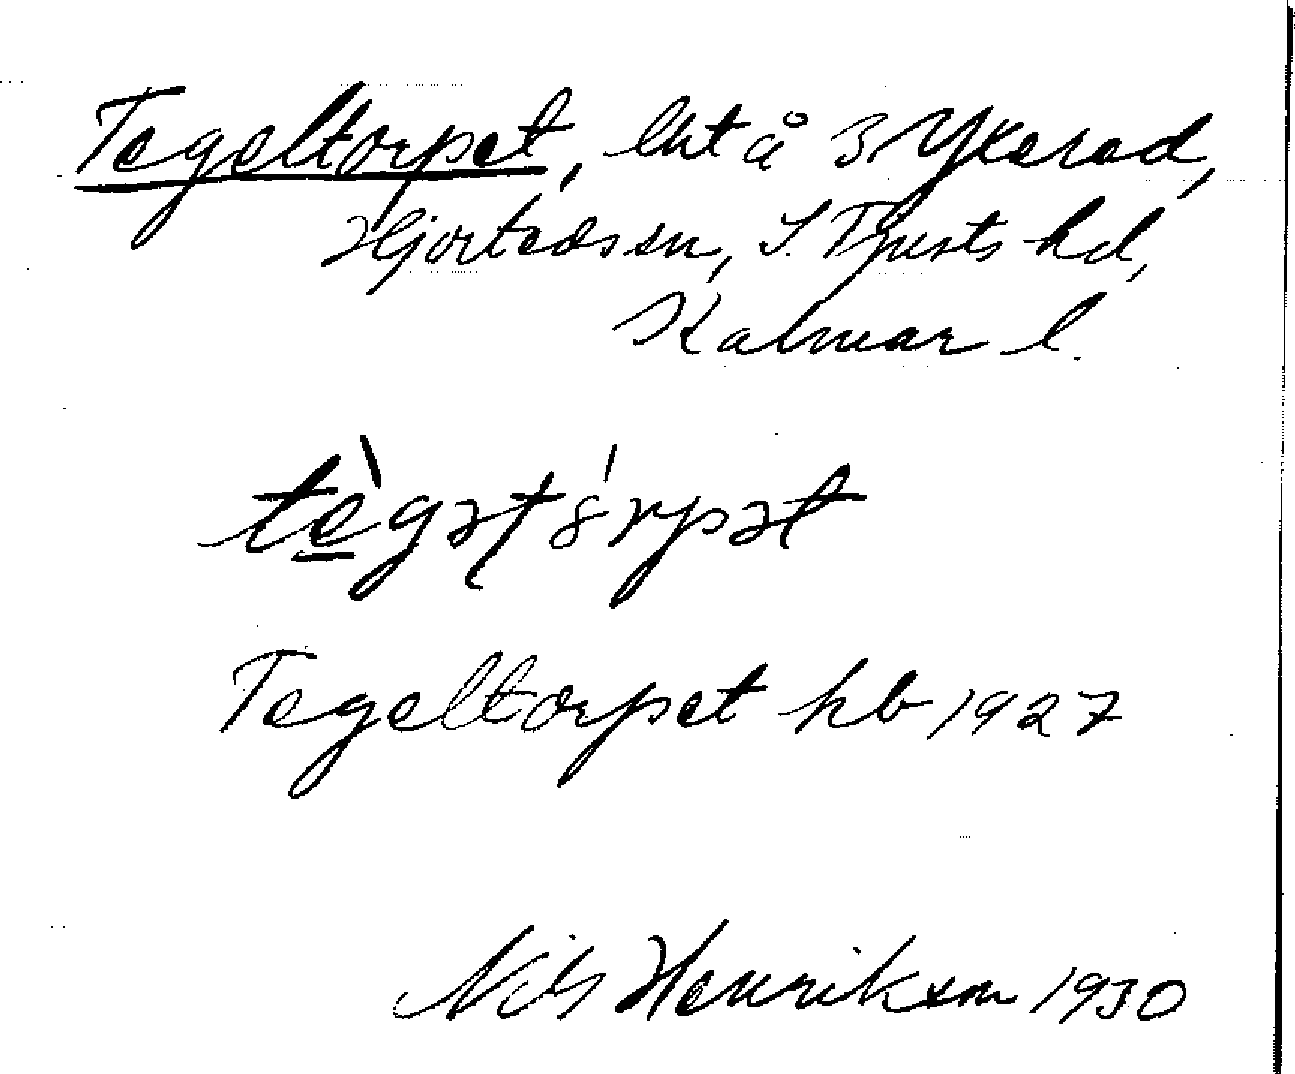 Tegeltorpet, lht å 3 Ykerad,
Hjorteds sn, S. Tjusts hd,
Kalmar l.
tègəţórpət
Tegeltorpet hb 1927
Nils Henrikson 1930